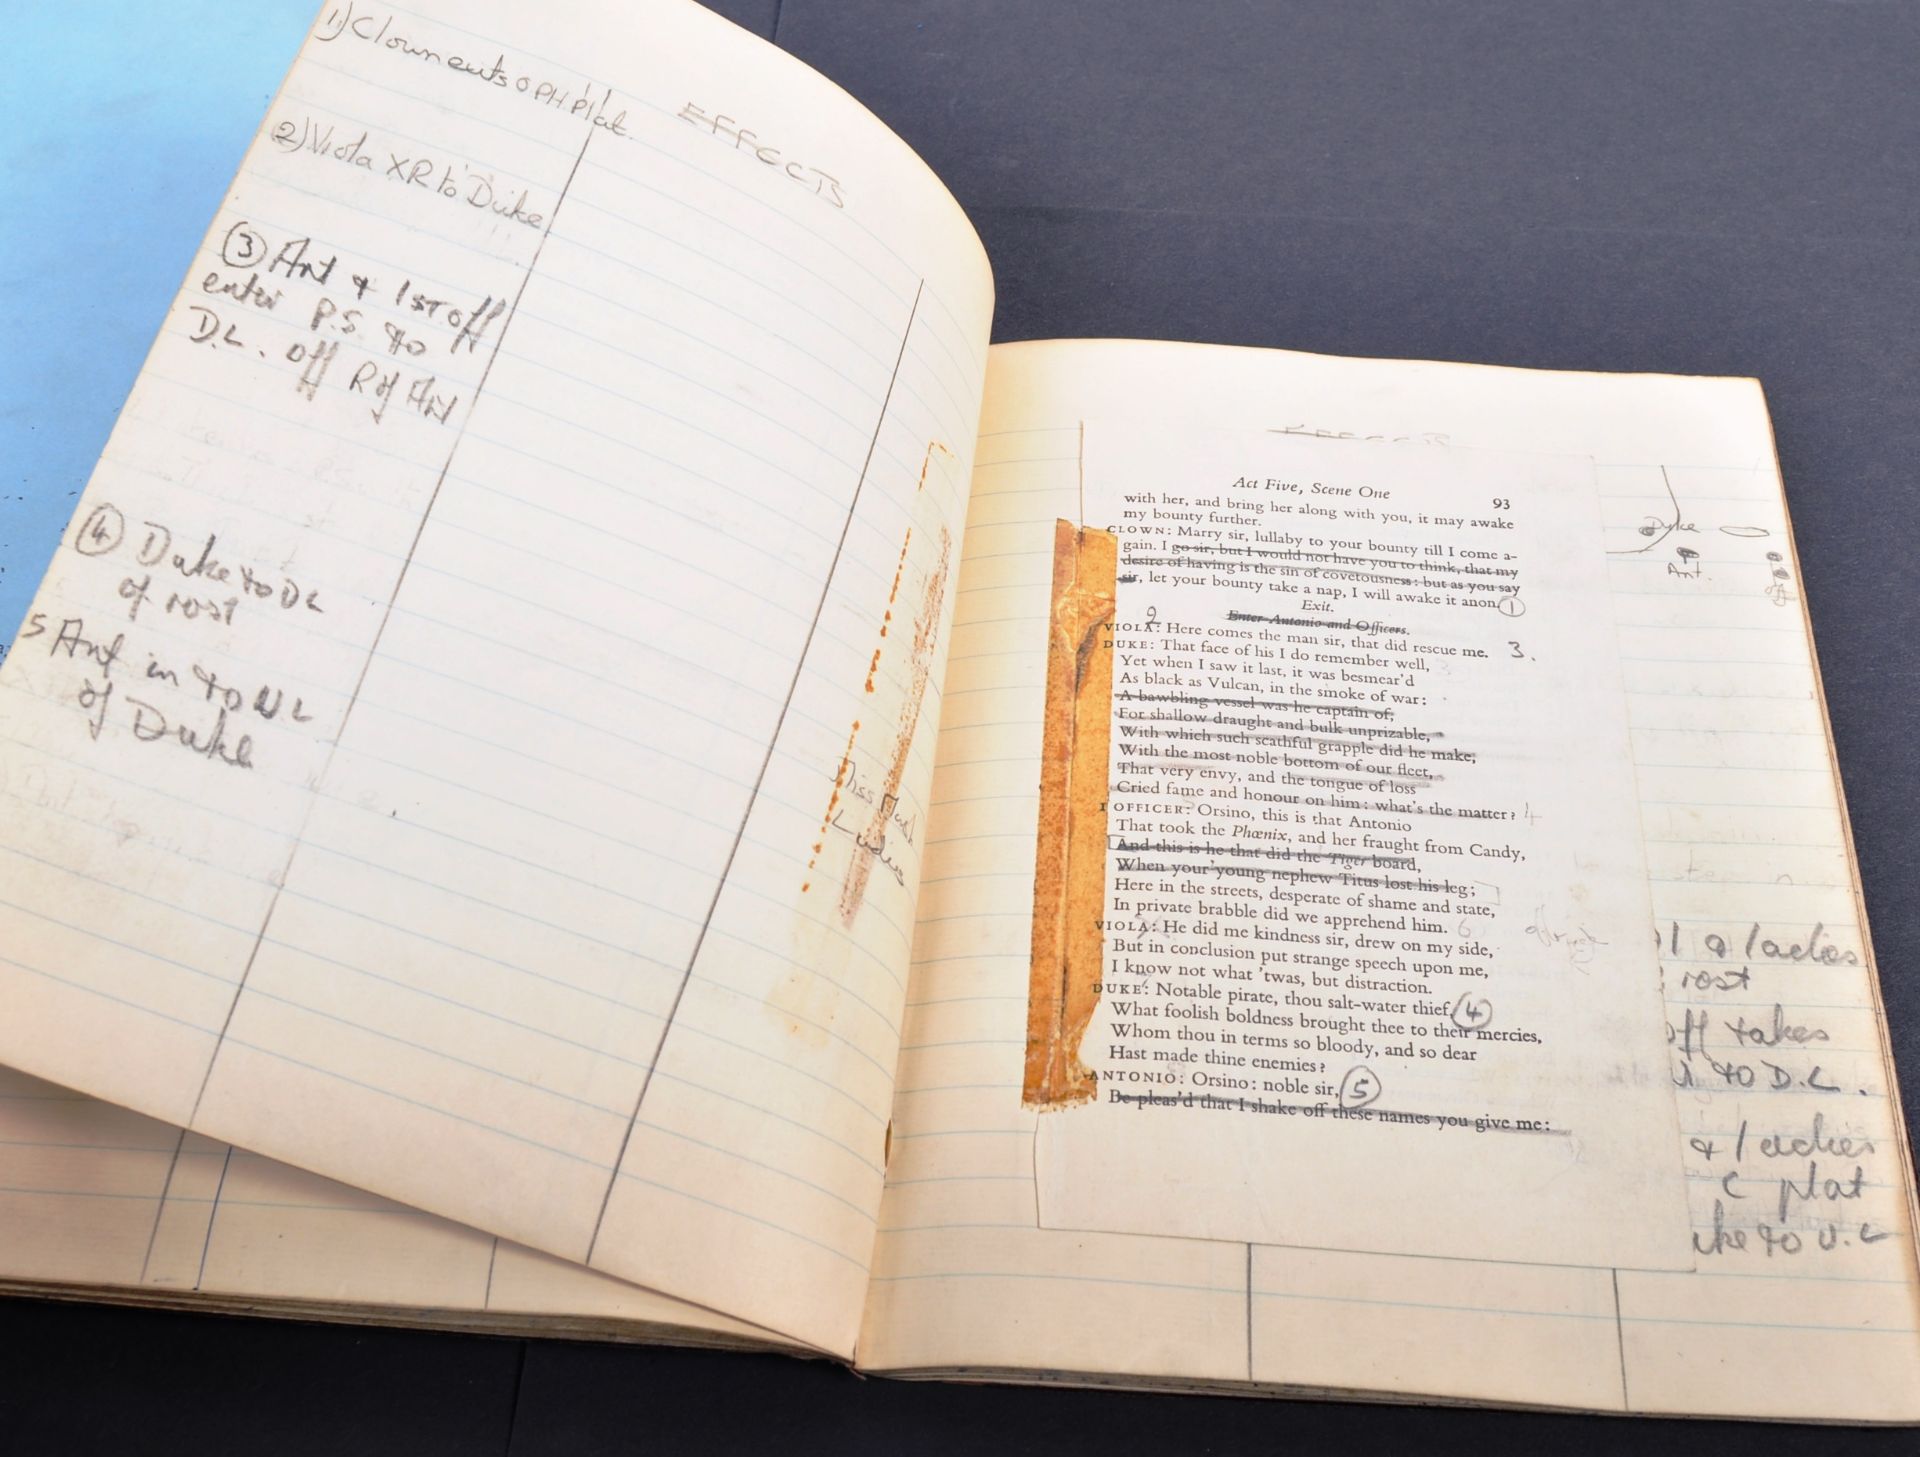 1) Clown exits OPH Plat.
EFFECTS
2) Viola XR to Duke
3 Ant & 1st off
enter P.S. to
D.L. off R of Ant
4 Duke to DL
of rost
5 Ant in to UL
of Duke
Miss
Ladies
EFFECTS
Act Five, Scene One 93
with her, and bring her along with you, it may awake
my bounty further.
CLOWN: Marry sir, lullaby to your bounty till I come a-
gain. I go sir, but I would not have you to think, that my
desire of having is the sin of covetousness: but as you say
sir, let your bounty take a nap, I will awake it anon. 1
Exit.
Enter Antonio and Officers.
2
VIOLA: Here comes the man sir, that did rescue me. 3.
DUKE: That face of his I do remember well,
Yet when I saw it last, it was besmear'd
As black as Vulcan, in the smoke of war:
A bawbling vessel was he captain of,
For shallow draught and bulk unprizable,
With which such scathful grapple did he make,
With the most noble bottom of our fleet,
That very envy, and the tongue of loss
Cried fame and honour on him: what's the matter? 4
I OFFICER: Orsino, this is that Antonio
That took the Phœnix, and her fraught from Candy,
And this is he that did the Tiger board,
When your young nephew Titus lost his leg;
Here in the streets, desperate of shame and state,
In private brabble did we apprehend him. 6
VIOLA: He did me kindness sir, drew on my side,
But in conclusion put strange speech upon me,
I know not what 'twas, but distraction.
DUKE: Notable pirate, thou salt-water thief, 4
What foolish boldness brought thee to their mercies,
Whom thou in terms so bloody, and so dear
Hast made thine enemies?
ANTONIO: Orsino: noble sir, 5
Be pleas'd that I shake off these names you give me:
Duke
Ant.
Off
ladies
rost
off takes
to D.L.
& ladies
C plat
to U.L